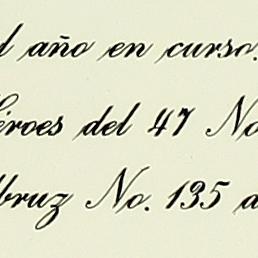 l año en curso.
éroes del 47 No
bruz No. 135 a